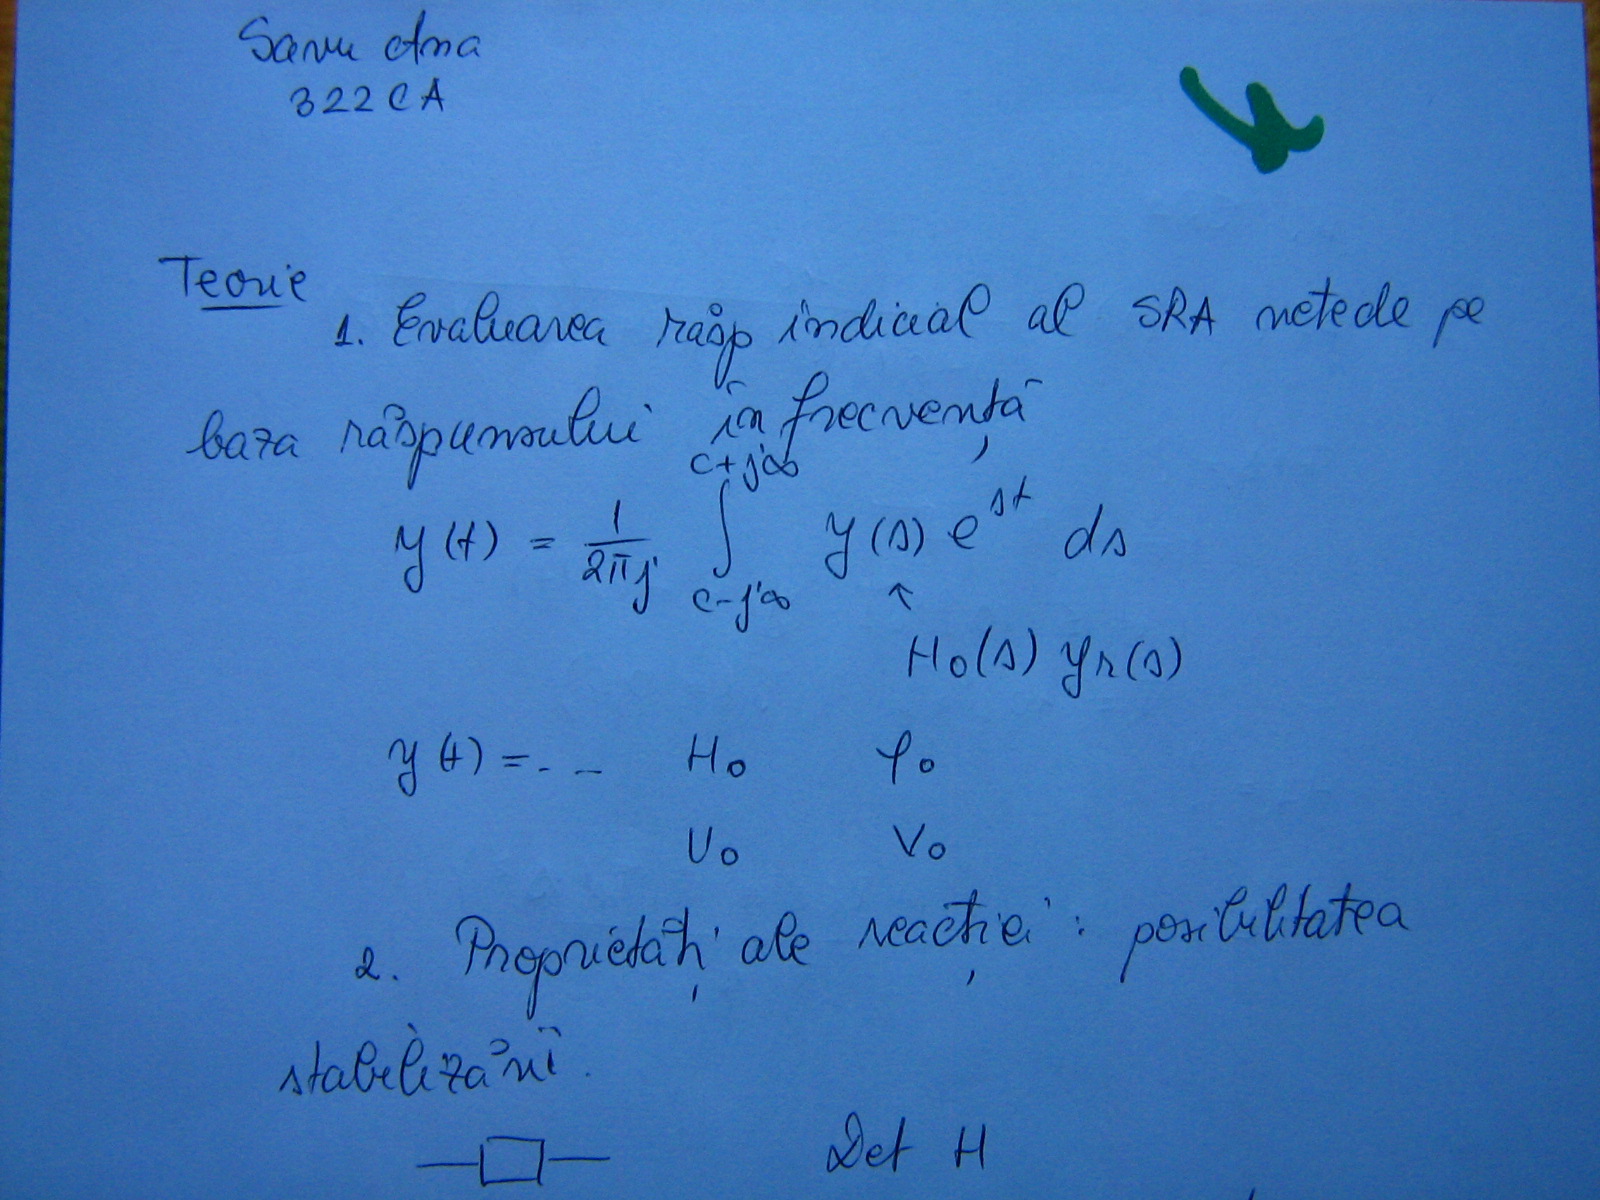 Savu Ana
322 CA
Teorie
1. Evaluarea răsp indicial al SRA netede pe
baza răspunsului în frecvență
y(t) = 1/2πj ∫ c-j∞ c+j∞ y(s) e^st ds
↑
H0(s) yr(s)
y(t) = - - H0 φ0
U0 V0
2. Proprietăți ale reacției: posibilitatea
stabilizării.
Det H